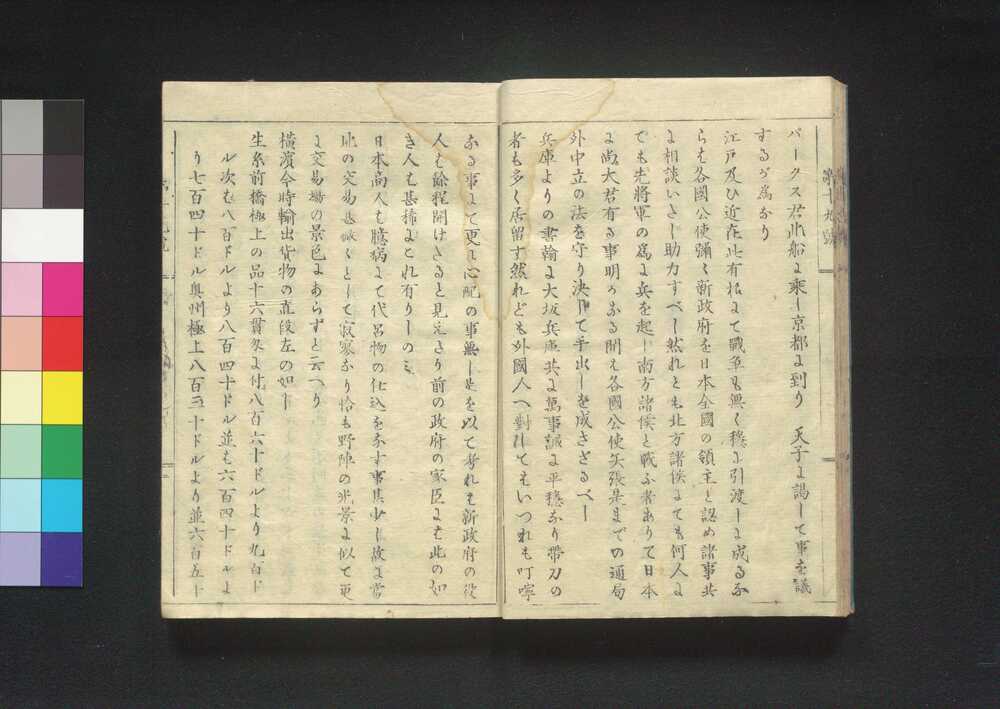 パークス君此船に乗し京都に到り 天子に謁して事を議
するが為なり
江戸及ひ近在此有様にて戦争も無く穏に引渡しに成るな
らむ各國公使彌々新政府を日本全國の領主と認め諸事共
に相談いたし助力すべし然れとも北方諸侯にても何人に
ても先将軍の為に兵を起し南方諸侯と戦ふ者ありて日本
に尚大君有る事明かなる間ハ各國公使矢張是までの通局
外中立の法を守り決して手出しを成さゞるべし
兵庫よりの書翰に大坂兵庫共に萬事誠に平穏なり帯刀の
者も多く居留す然れども外國人へ對してもいつれも叮嚀
なる事にて更に心配の事無し是を以て考れは新政府の役
人も餘程開けたると見えたり前の政府の家臣には此の如
き人も甚稀にこれ有りしのミ
日本商人も臆病にて代呂物の仕込をなす事其少し故に當
地の交易甚微々として寂寥なり恰も野陣の光景に似て更
に交易場の景色にあらずと云へり
横濱今時輸出貨物の直段左の如し
生糸前橋極上の品十六貫匁に付八百六十ドルより九百ド
ル次は八百ドルより八百四十ドル並は六百四十ドルよ
り七百四十ドル奥州極上八百三十ドルより並六百五十
第十九號